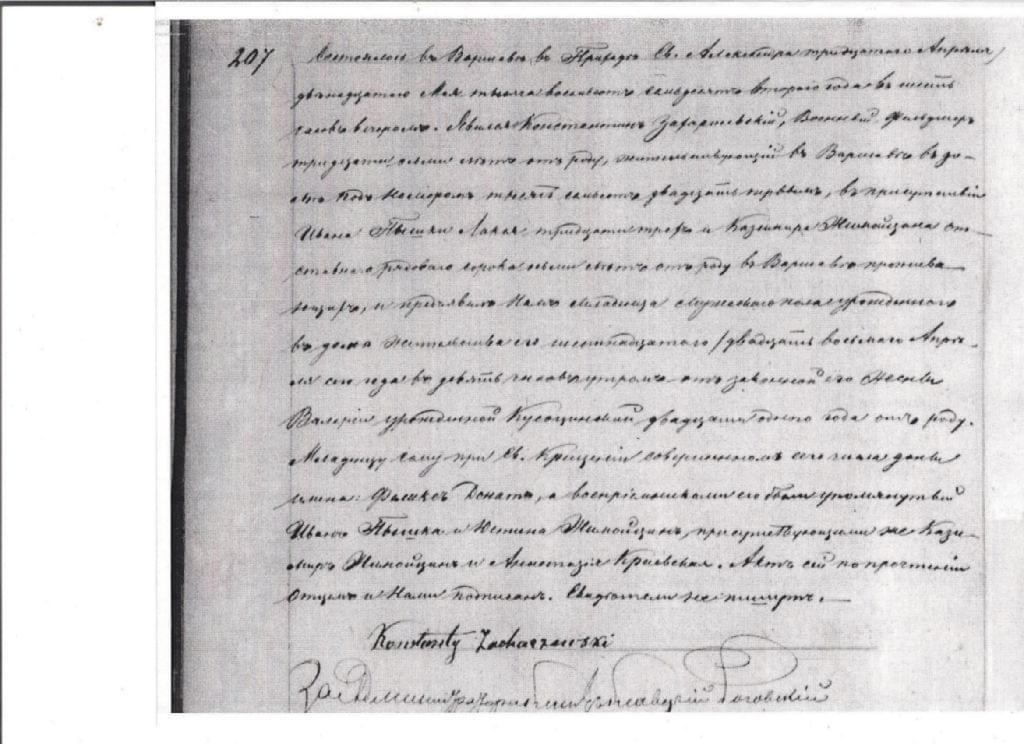 207
Состоялось въ Варшавѣ въ Приходѣ Св. Александра тридцатаго Апрѣля /
двѣнадцатаго Мая тысяча восемьсотъ семьдесятъ втораго года въ шесть
часовъ вечеромъ. Явился Константинъ Захаршевскій, Военный Фельдшеръ
тридцати семи лѣтъ отъ роду, жительствующій въ Варшавѣ въ до-
мѣ подъ номеромъ тысяча семьсотъ двадцать , въ присутствіи
Ивана Пышки Лакея тридцати трехъ и Казимира от-
ставнаго рядоваго сорока семи лѣтъ отъ роду въ Варшавѣ прожива-
ющихъ, и предъявилъ Намъ Младенца мужескаго пола урожденнаго
въ домѣ жительства его шестнадцатаго / двадцать восьмаго Апрѣ-
ля сего года въ девять часовъ утромъ отъ законной его Жены
Валеріи урожденной двадцати одного года отъ роду.
Младенцу сему при Св. Крещеніи совершенномъ сего числа даны
имена: Феликсъ Донатъ, а воспріемниками его были упомянутый
Иванъ Пышка и Юстина присутствующими же Кази-
миръ и Анастазія Краевская. Актъ сей по прочтеніи
Отцемъ и Нами подписанъ. Свидѣтели не пишутъ.
Konstanty Zacharzewski